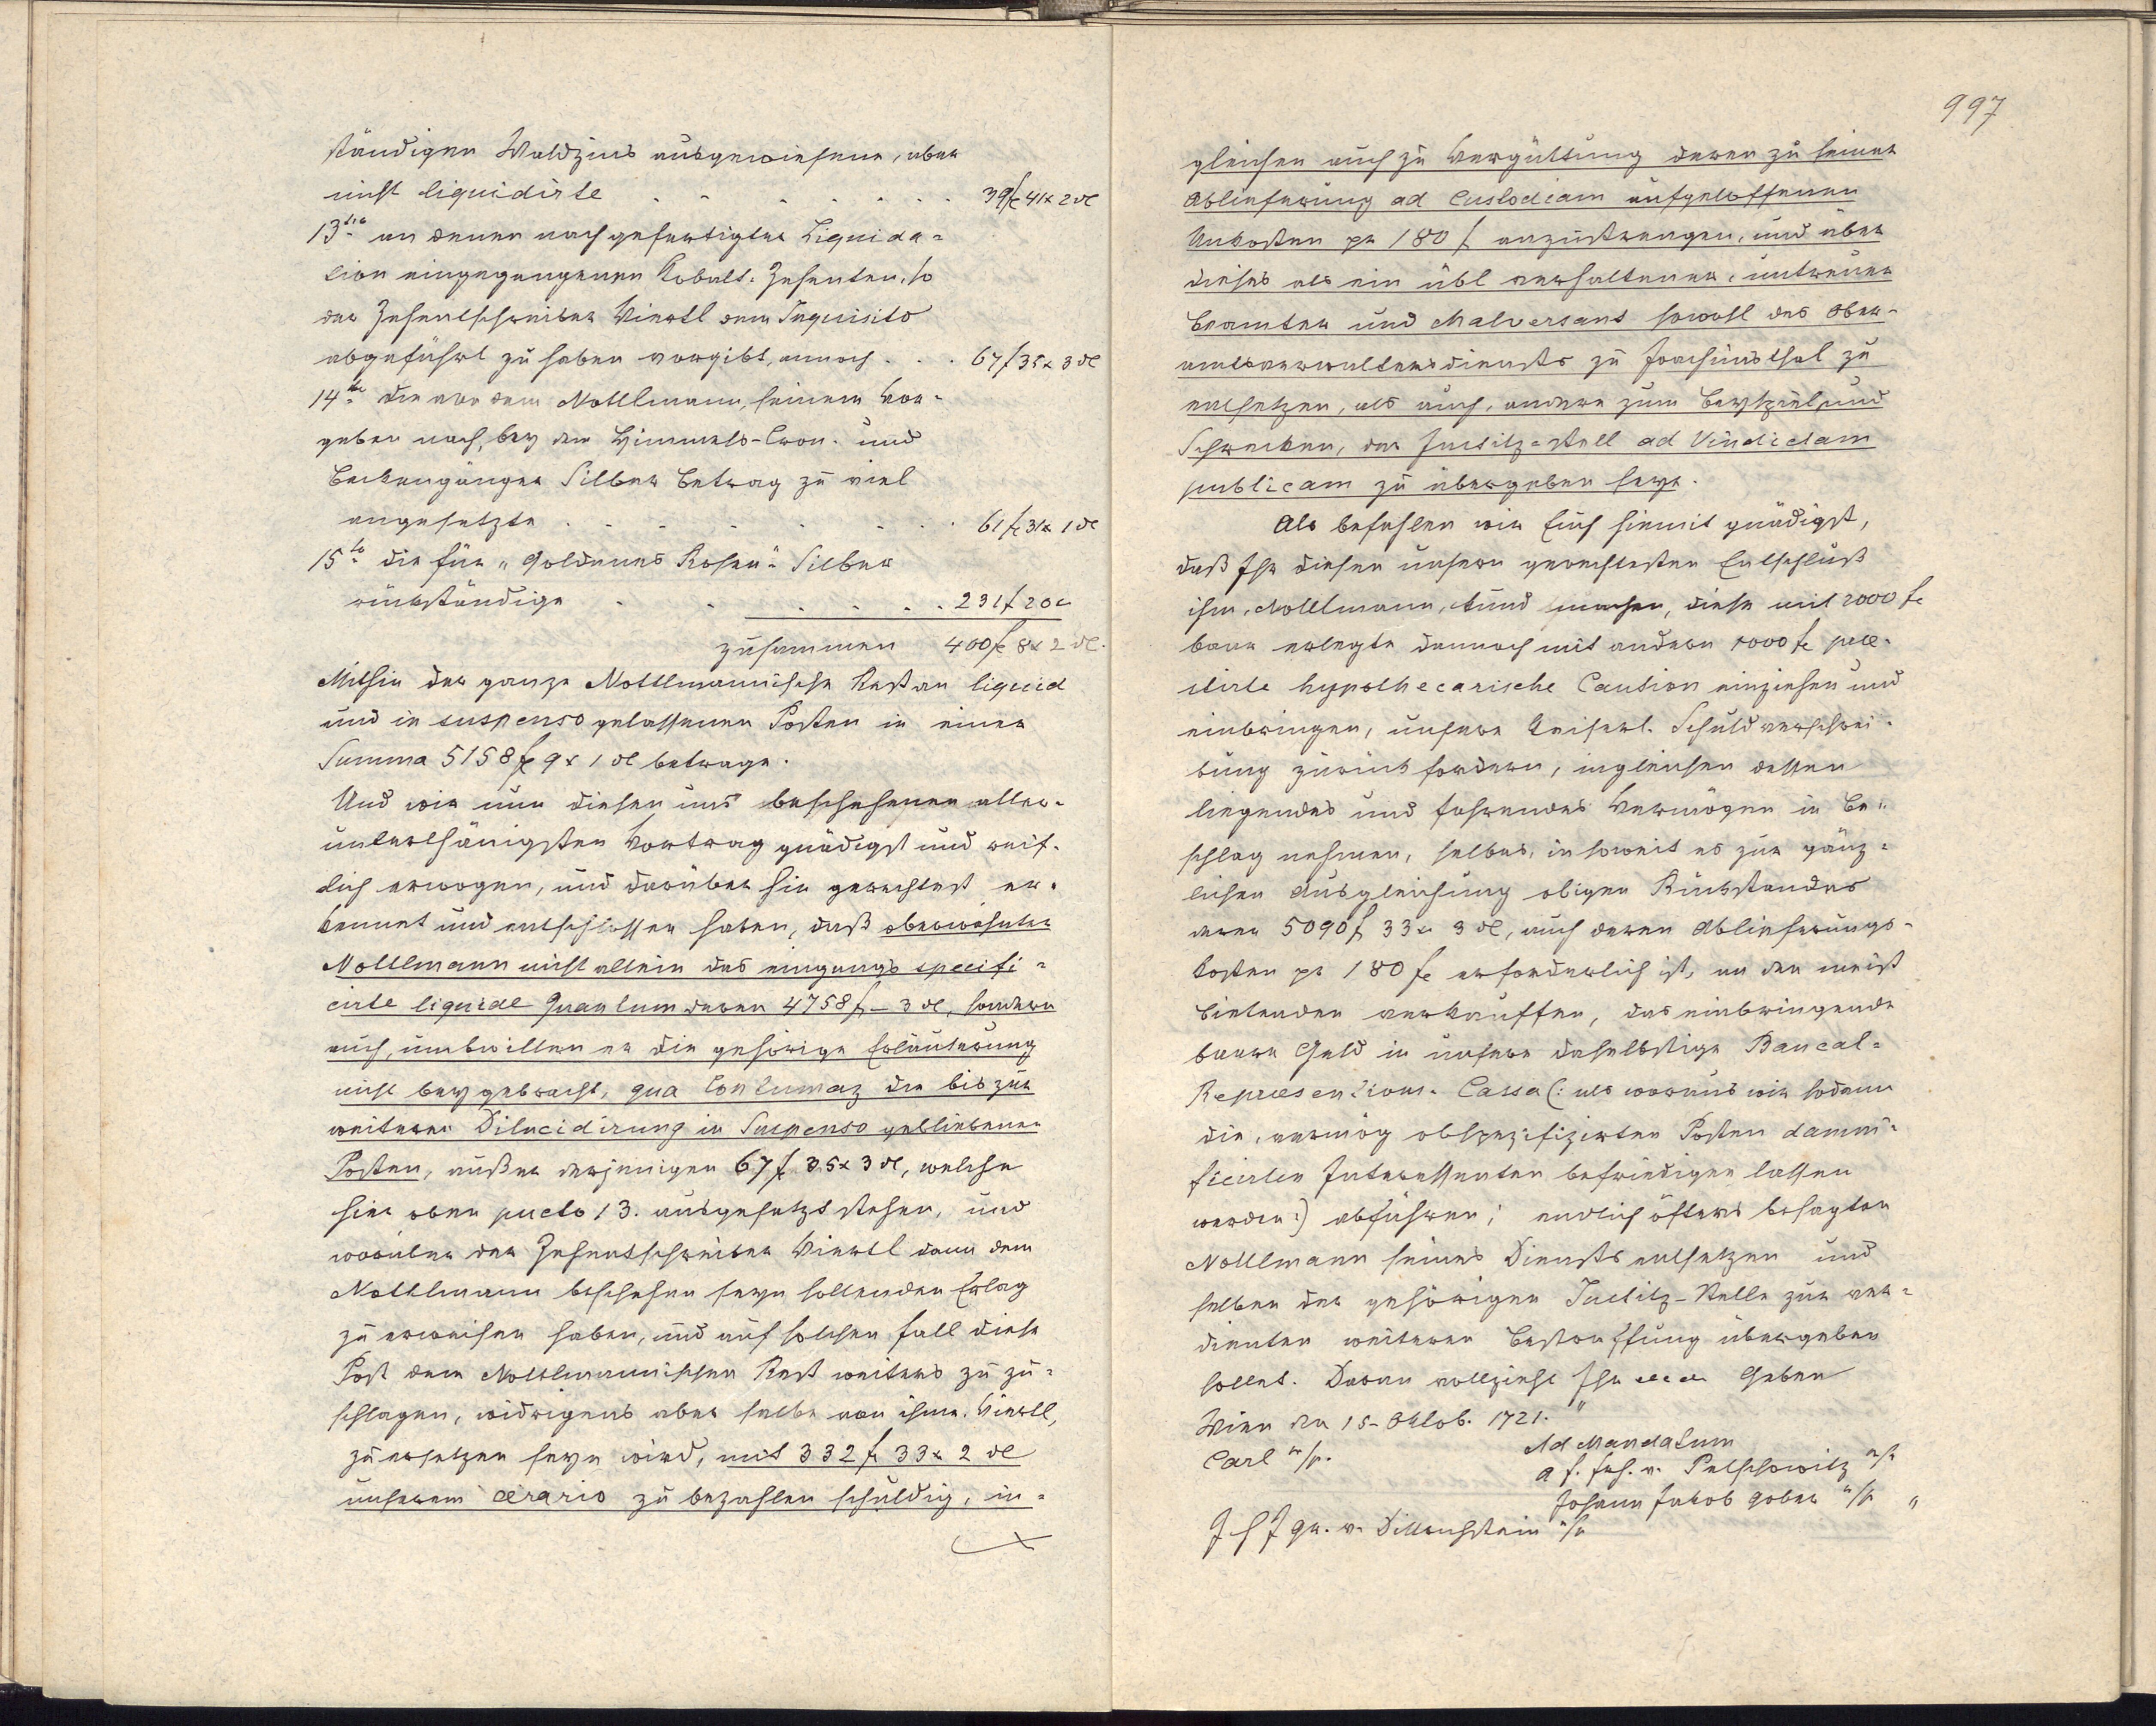 ständigen Waldzins ausgewiesene, aber
nicht liquidirte . . . . . . . 39 f 41 x 2 dl
13tio an denen nach gefertigter Liquida-
tion eingegangenen Kobalt-Zehenten, so
der Zehentschreiber Viertl dem Inquisito
abgeführt zu haben vorgibt, annoch . . . 67 f 35 x 3 dl
14to die von dem Nottlmann, seinem Vor-
geben nach, bey der Himmels-Cron- und
Beckengänger Silber Betrag zu viel
angesetzte . . . . . . . 61 f 31 x 1 dl
15to die für "Goldenes Rosen"- Silber
rückständige . . . . . . 231 f 20 x
zusammen 400 f 8 x 2 dl.
Mithin der ganze Nottlmannische Rest an liquid
und in suspenso gelassenen Posten in einer
Summa 5158 f 9 x 1 dl betrage.
Und wir nun diesen uns beschehenen aller-
unterthänigsten Vortrag gnädigst und reif-
lich erwogen, und darüber hin gerechtest er-
kennet und entschlossen haben, daß oberwohnter
Nottlmann nicht allein das eingangs specifi-
cirte liquide Quantum deren 4758 f – 3 dl, sondern
auch, umbwillen er die gehörige Erläuterung
nicht beygebracht, qua Contumaz die bis zur
weiteren Dilucidirung in Suspenso gebliebenen
Posten, außer derjenigen 67 f 35 x 3 dl, welche
hier oben pucto 13. ausgesetzt stehen, und
worüber der Zehentschreiber Viertl dann dem
Nottlmann beschehen seyn sollenden Erlag
zu erweisen haben, und auf solchen fall diese
Post dem Nottlmannischen Rest weiters zu zu-
schlagen, widrigens aber selbe von ihme, Viertl,
zu ersetzen seyn wird, mit 332 f 33 x 2 dl
unserem aerario zu bezahlen schuldig, in-
997
gleichen auch zu Vergüttung deren zu seiner
Ablieferung ad Custodiam aufgeloffenen
Unkosten pr 180 f anzustrengen, und über
dieses als ein übl verhaltener, untreuer
Beamter und Malversant sowohl des Ober-
amtsverwaltersdiensts zu Joachimsthal zu
entsetzen, als auch, andern zum Beyspiel und
Schrecken, der Justitz-Stell ad Vindictam
publicam zu übergeben seye.
Als befehlen wir Euch hiemit gnädigst,
daß Ihr diesen unsern gerechtesten Entschluß
ihm, Nottlmann, kund machen, diese mit 2000 f
baar erlegte dannoch mit andern 1000 f prae-
stirte hypothecarische Caution einziehen und
einbringen, unsere Kaiserl. Schuldverschrei-
bung zurück fordern, ingleichen dessen
liegendes und fahrendes Vermögen in Be-
schlag nehmen, selbes, in soweit es zur gänz-
lichen Ausgleichung obigen Rückstandes
deren 5090 f 33 x 3 dl, auch deren Ablieferungs-
kosten pr 180 f erforderlich ist, an den meist
Bietenden verkauffen, das einbringende
baare Geld in unsere daselbstige Bancal-
Repraesentions-Cassa (: als woraus wir sodann
die, vermög obspezifizirten Posten damni-
ficirten Interessenten befriedigen lassen
werden :) abführen; endlich öfters besagten
Nottlmann seines Diensts entsetzen und
selben der gehörigen Justitz-Stelle zur ver-
dienten weiteren Bestraffung übergeben
sollet. Daran vollzieht Ihr etc etc Geben
Wien den 15. Oktob. 1721. "
Carl m/p. Ad Mandatum
Johann Jakob Gober m/p "
Gr. v. m/p